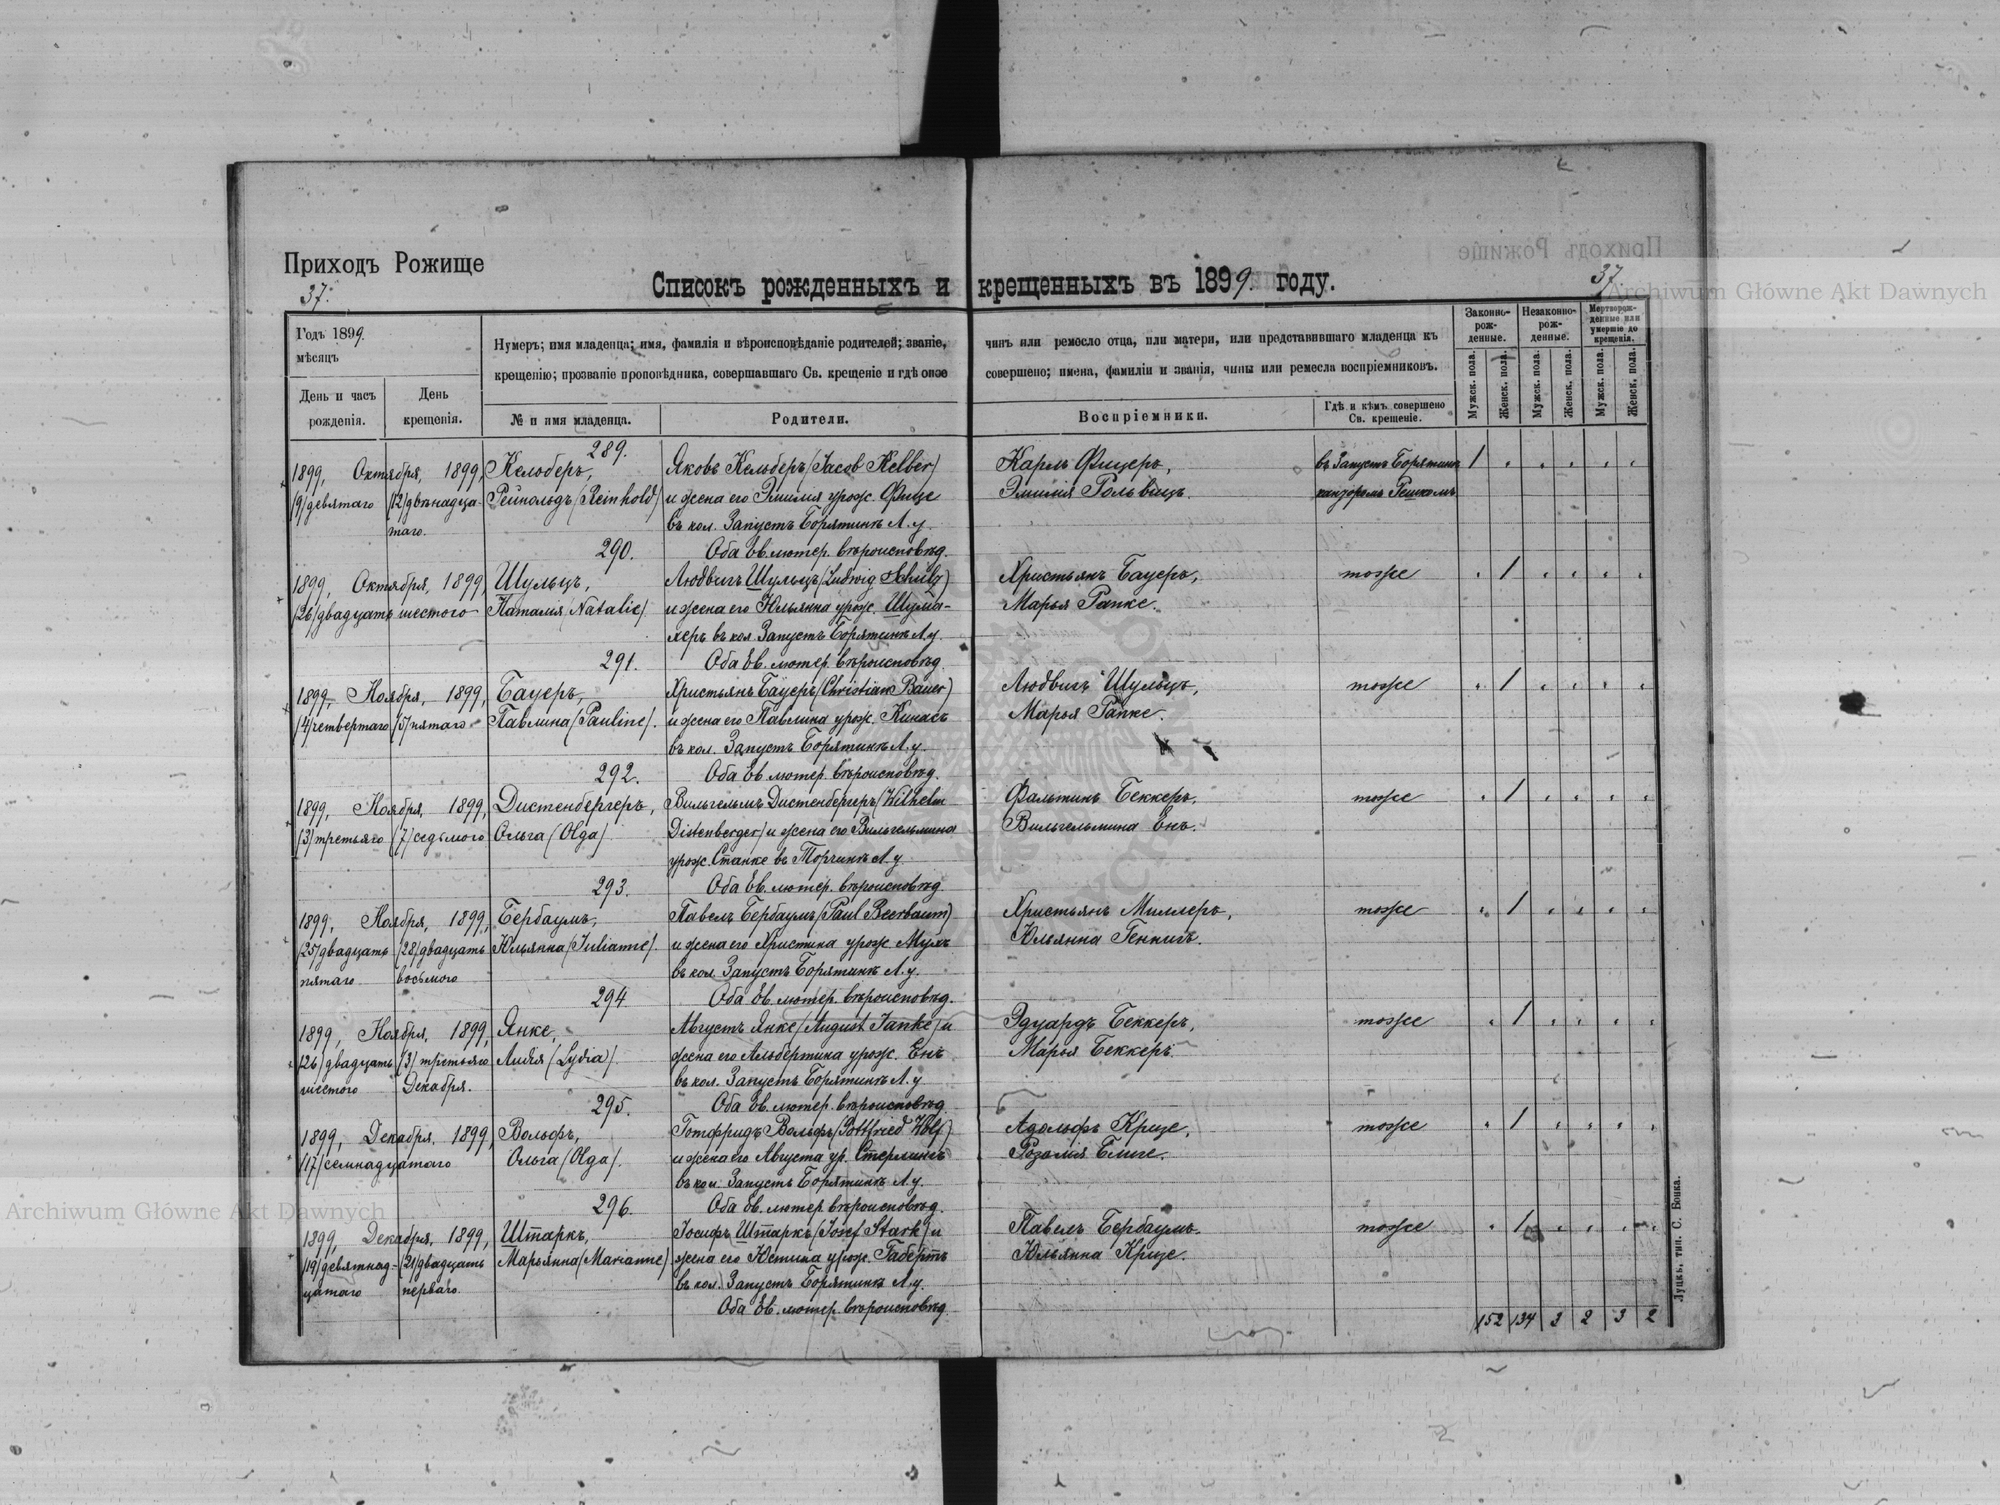 Приходъ Рожище
37.
Списокъ рожденныхъ и крещенныхъ въ 1899. году.
37
Archiwum Główne Akt Dawnych
Годъ 1899.
мѣсяцъ
День и часъ рожденія.
День крещенія.
Нумеръ; имя младенца; имя, фамилія и вѣроисповѣданіе родителей; званіе, чинъ или ремесло отца, или матери, или представившаго младенца къ
крещенію; прозваніе проповѣдника, совершавшаго Св. крещеніе и гдѣ оное совершено; имена, фамиліи и званія, чины или ремесла воспріемниковъ.
№ и имя младенца.
Родители.
Воспріемники.
Гдѣ и кѣмъ совершено Св. крещеніе.
Законно-рож-денные.
Незаконно-рож-денные.
Мертворож-денные или умершіе до крещенія.
Мужск. пола.
Женск. пола.
Мужск. пола.
Женск. пола.
Мужск. пола.
Женск. пола.
289.
1899, Октября, 1899, Кельберъ, Яковъ Кельберъ (Jacob Kelber) Карлъ Фицеръ, въ Запустъ Борятинѣ 1
(9) девятаго (12) двѣнадца- Рейнольдъ (Reinhold) и жена его Эмилія урож. Фице Эмилія Рольвицъ. канторомъ Решкомъ
таго. въ кол. Запустъ Борятинѣ Л. у.
290. Оба Ев. лютер. вѣроисповѣд.
1899, Октября, 1899, Шульцъ, Людвигъ Шульцъ (Ludwig Schulz) Христьянъ Бауеръ, тоже 1
(26) двадцать шестого Наталія (Natalie) и жена его Юльянна урож. Шума- Марья Рапке.
херъ въ кол. Запустъ Борятинѣ Л. у.
291. Оба Ев. лютер. вѣроисповѣд.
1899, Ноября, 1899, Бауеръ, Христьянъ Бауеръ (Christian Bauer) Людвигъ Шульцъ, тоже 1
(4) четвертаго (5) пятаго Павлина (Pauline). и жена его Павлина урож. Кинасъ Марья Рапке.
въ кол. Запустъ Борятинѣ Л. у.
292. Оба Ев. лютер. вѣроисповѣд.
1899, Ноября, 1899, Дистенбергеръ, Вильгельмъ Дистенбергеръ (Wilhelm Фальтинъ Беккеръ, тоже 1
(3) третьяго (7) седьмого Ольга (Olga) Distenberger) и жена его Вильгельмина Вильгельмина Енъ.
урож. Станке въ Торчинѣ Л. у.
293. Оба Ев. лютер. вѣроисповѣд.
1899, Ноября, 1899, Бербаумъ, Павелъ Бербаумъ (Paul Beerbaum) Христьянъ Миллеръ, тоже 1
(25) двадцать (28) двадцать Юльянна (Julianne). и жена его Христина урож. Мухъ Юльянна Геннигъ.
пятаго восьмого въ кол. Запустъ Борятинѣ Л. у.
294 Оба Ев. лютер. вѣроисповѣд.
1899, Ноября, 1899, Янке, Августъ Янке (August Janke) и Эдуардъ Беккеръ, тоже 1
(26) двадцать (3) третьяго Лидія (Lydia). жена его Альбертина урож. Енъ Марья Беккеръ.
шестого Декабря. въ кол. Запустъ Борятинѣ Л. у.
295. Оба Ев. лютер. вѣроисповѣд.
1899, Декабря, 1899, Вольфъ, Готфридъ Вольфъ (Gottfried Wolf) Адольфъ Крице, тоже 1
(17) семнадцатаго Ольга (Olga). и жена его Августа ур. Стерлингъ Розалія Блиге.
въ кол. Запустъ Борятинѣ Л. у.
296. Оба Ев. лютер. вѣроисповѣд.
Archiwum Główne Akt Dawnych
1899, Декабря, 1899, Штаркъ, Іосифъ Штаркъ (Josef Stark) и Павелъ Бербаумъ. тоже 1
(19) девятнад- (21) двадцать Марьянна (Marianne) жена его Юстина урож. Габертъ Юльянна Крице.
цатаго перваго. въ кол. Запустъ Борятинѣ Л. у.
Оба Ев. лютер. вѣроисповѣд.
152 134 3 2 3 2
Луцкъ, тип. С. Бонка.